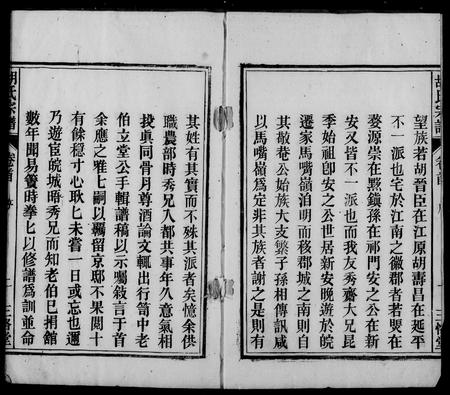 望族若胡晉臣在江原胡壽昌在延平
不一派也宅於江南之徽郡者若煚在
婺源崇在黟鎭孫在祁門安之公在新
安又皆不一派也而我友秀齋大兄昆
季始祖卽安之公世居新安晚遊於嶺
遷家馬嘴嶺泊明而移郡城之南則自
其敬菴公始族大支繁子孫相傳訊咸
以馬嘴嶺爲定非其族者謝之是則有
胡氏宗譜
卷首
序
三
堂
其姓有其實而不殊其派者矣憶余供
職農部時秀兄入都共事年久意氣相
投眞同骨月尊酒論文輒出行笥中老
伯立堂公手輯譜稿以示囑敘言于首
余應之雅七嗣以羈留京邸不果閲十
有餘稔寸心耿七未嘗一日或忘也邇
乃遊宦皖城晤秀兄而知老伯已捐館
數年聞易簀時拳匕以修譜爲訓並命
胡氏宗譜
卷首
序
二
三
堂